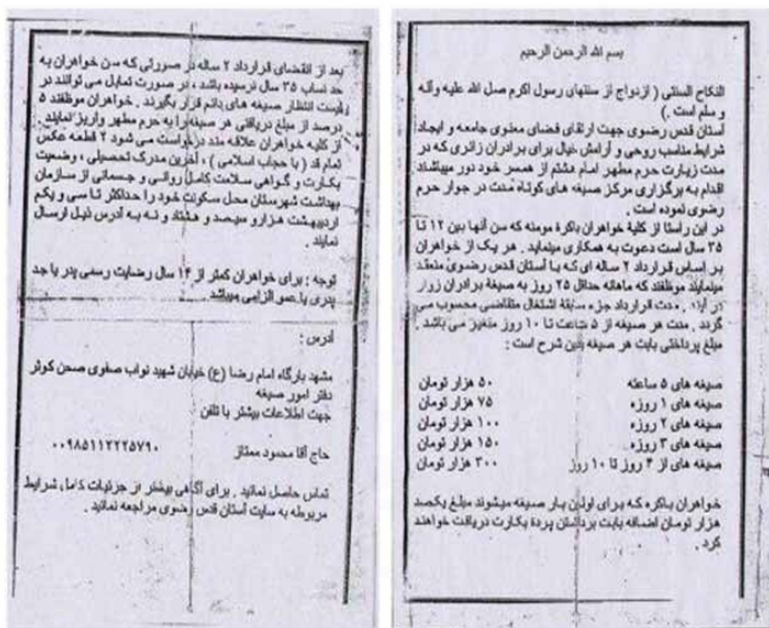 بسم الله الرحمن الرحیم
النکاح السنتی ( ازدواج از سنتهای رسول اکرم صل الله علیه وآله
و سلم است . )
آستان قدس رضوی جهت ارتقای فضای معنوی جامعه و ایجاد
شرایط مناسب روحی و آرامش خیال برای برادران زائری که در
مدت زیارت حرم مطهر امام هشتم از همسر خود دور میباشند
اقدام به برگزاری مرکز صیغه های کوتاه مدت در جوار حرم
رضوی نموده است .
در این راستا از کلیهٔ خواهران باکرهٔ مومنه که سن آنها بین ۱۲ تا
۳۵ سال است دعوت به همکاری مینماید . هر یک از خواهران
بر اساس قرارداد ۲ ساله ای که با آستان قدس رضوی منعقد
مینمایند موظفند که ماهانه حداقل ۲۵ روز به صیغهٔ برادران زوار
در آیند . مدت قرارداد جزء سابقهٔ اشتغال متقاضی محسوب می
گردد . مدت هر صیغه از ۵ ساعت تا ۱۰ روز متغیر می باشد .
مبلغ پرداختی بابت هر صیغه بدین شرح است :
صیغه های ۵ ساعته ۵۰ هزار تومان
صیغه های ۱ روزه ۷۵ هزار تومان
صیغه های ۲ روزه ۱۰۰ هزار تومان
صیغه های ۳ روزه ۱۵۰ هزار تومان
صیغه های از ۴ روز تا ۱۰ روز ۳۰۰ هزار تومان
خواهران باکره که برای اولین بار صیغه میشوند مبلغ یکصد
هزار تومان اضافه بابت برداشتن پردهٔ بکارت دریافت خواهند
کرد .
بعد از انقضای قرارداد ۲ ساله در صورتی که سن خواهران به
حد نصاب ۳۵ سال نرسیده باشد ، در صورت تمایل می توانند در
لیست انتظار صیغه های دائم قرار بگیرند . خواهران موظفند ۵
درصد از مبلغ دریافتی هر صیغه را به حرم مطهر واریز نمایند .
از کلیه خواهران علاقه مند درخواست می شود ۲ قطعه عکس
تمام قد ( با حجاب اسلامی ) ، آخرین مدرک تحصیلی ، وضعیت
بکارت و گواهی سلامت کامل روانی و جسمانی از سازمان
بهداشت شهرستان محل سکونت خود را حداکثر تا سی و یکم
اردیبهشت هزار و سیصد و هشتاد و نه به آدرس ذیل ارسال
نمایند .
توجه : برای خواهران کمتر از ۱۴ سال رضایت رسمی پدر یا جد
پدری یا عمو الزامی میباشد .
آدرس :
مشهد بارگاه امام رضا (ع) خیابان شهید نواب صفوی صحن کوثر
دفتر امور صیغه
جهت اطلاعات بیشتر با تلفن
تماس حاصل نمائید . برای آگاهی بیشتر از جزئیات کامل شرایط
مربوطه به سایت آستان قدس رضوی مراجعه نمائید .